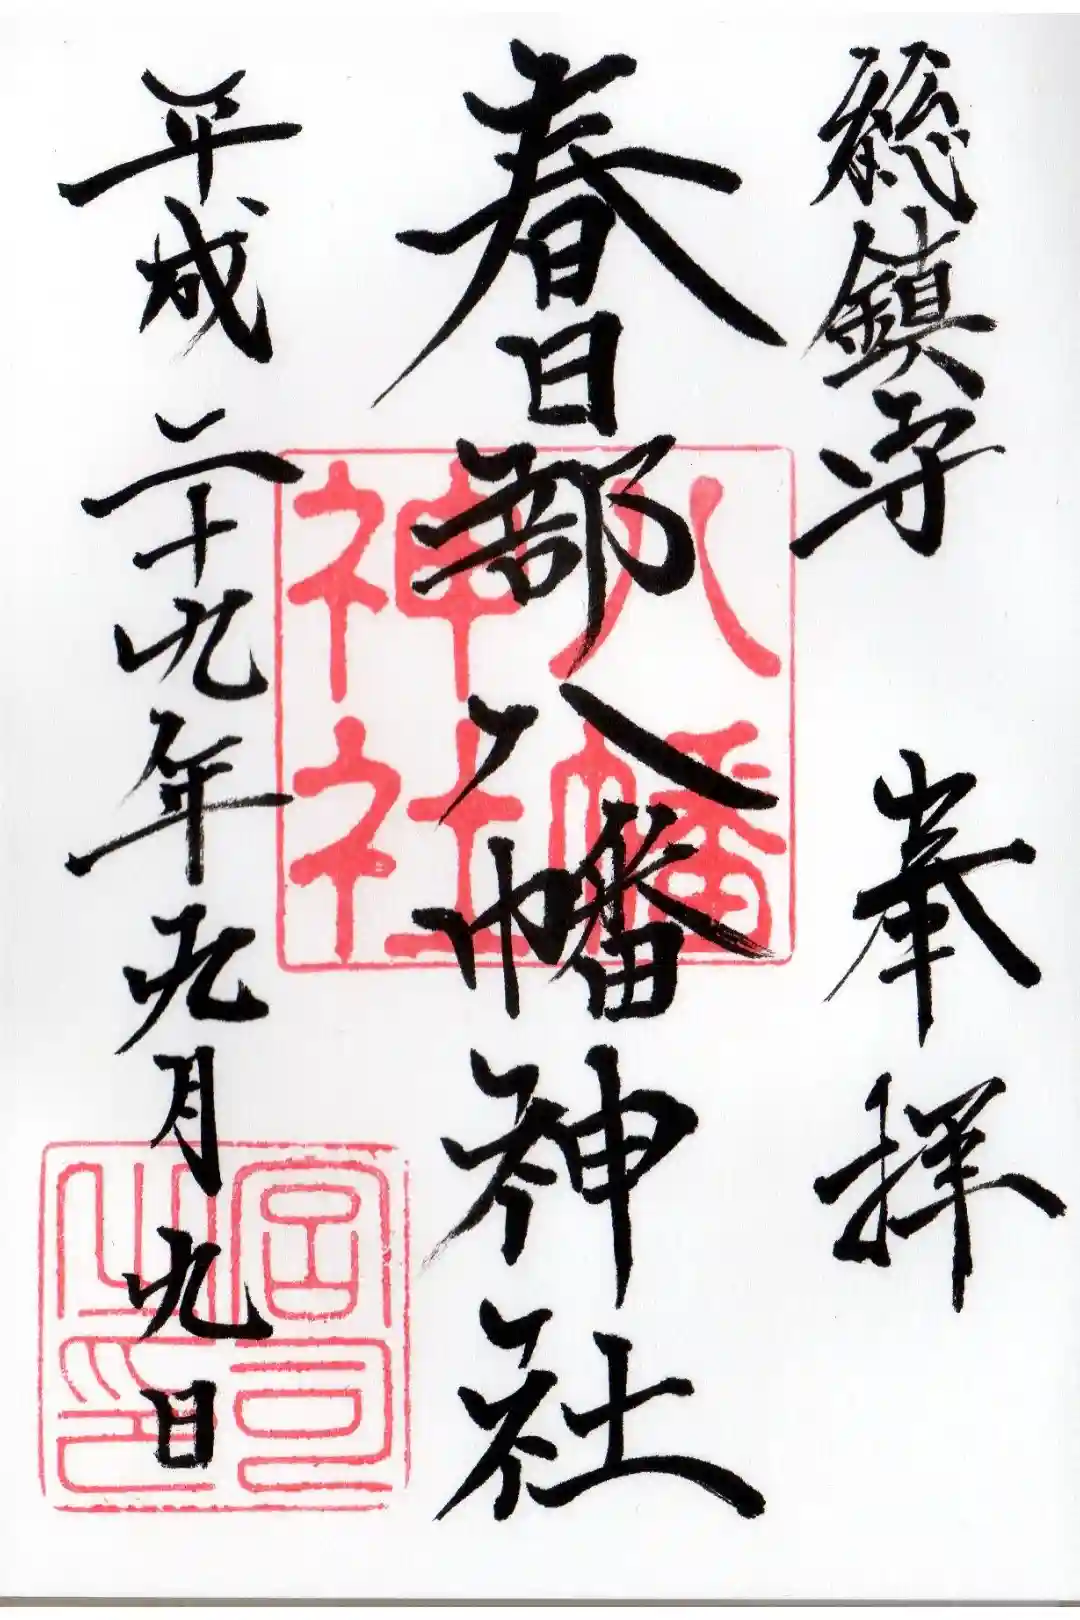 総鎮守
奉拝
春日部八幡神社
平成二十九年九月九日
八幡
神社
宮司
之印